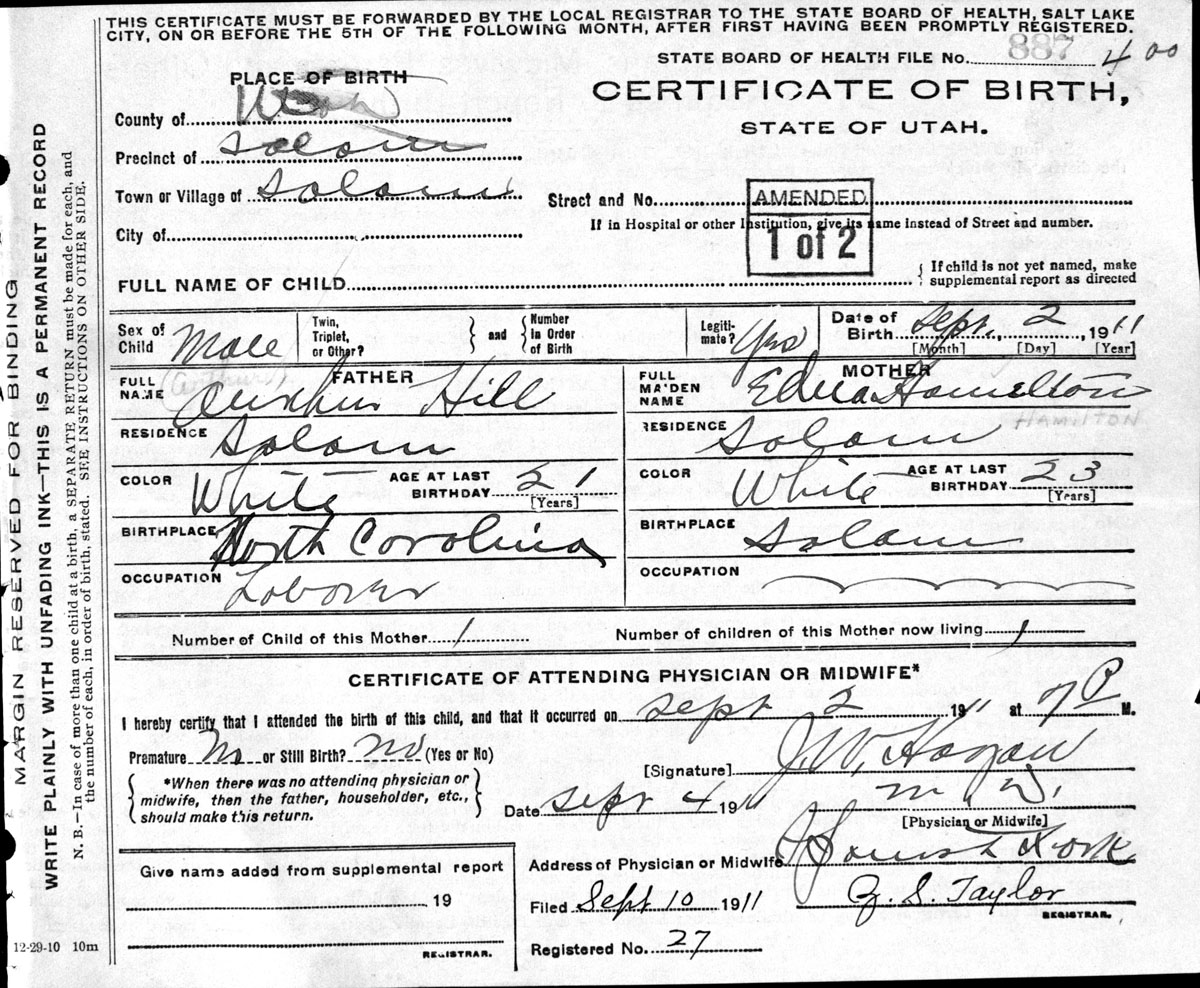 THIS CERTIFICATE MUST BE FORWARDED BY THE LOCAL REGISTRAR TO THE STATE BOARD OF HEALTH, SALT LAKE
CITY, ON OR BEFORE THE 5TH OF THE FOLLOWING MONTH, AFTER FIRST HAVING BEEN PROMPTLY REGISTERED.
STATE BOARD OF HEALTH FILE No. 887 400
PLACE OF BIRTH
CERTIFICATE OF BIRTH,
STATE OF UTAH.
County of
Precinct of Salem
Town or Village of Salem
Street and No.
AMENDED
1 of 2
If in Hospital or other Institution, give its name instead of Street and number.
City of
FULL NAME OF CHILD
{ If child is not yet named, make
supplemental report as directed
Sex of Child Male
Twin, Triplet, or Other? } and { Number in Order of Birth
Legiti- mate? Yes
Date of Birth Sept. 2, 1911
[Month] [Day] [Year]
FATHER
FULL NAME (Arthur) Arthur Hill
RESIDENCE Salem
COLOR White AGE AT LAST BIRTHDAY 21 [Years]
BIRTHPLACE North Carolina
OCCUPATION Laborer
MOTHER
FULL MAIDEN NAME Edna Hamelton
HAMILTON
RESIDENCE Salem
COLOR White AGE AT LAST BIRTHDAY 23 [Years]
BIRTHPLACE Salem
OCCUPATION
Number of Child of this Mother 1 Number of children of this Mother now living 1
CERTIFICATE OF ATTENDING PHYSICIAN OR MIDWIFE*
I hereby certify that I attended the birth of this child, and that it occurred on Sept 2 1911 at 7 P M.
Premature No or Still Birth? No (Yes or No)
{ *When there was no attending physician or
midwife, then the father, householder, etc.,
should make this return. }
[Signature] J. W. Hagan
M. D.
[Physician or Midwife]
Date Sept 4 1911
Address of Physician or Midwife Spanish Fork
Filed Sept 10 1911
Z. S. Taylor
REGISTRAR.
Registered No. 27
Give name added from supplemental report
19
REGISTRAR.
12-29-10 10m
MARGIN RESERVED FOR BINDING
WRITE PLAINLY WITH UNFADING INK—THIS IS A PERMANENT RECORD
N. B.—In case of more than one child at a birth, a SEPARATE RETURN must be made for each, and
the number of each, in order of birth, stated. SEE INSTRUCTIONS ON OTHER SIDE.